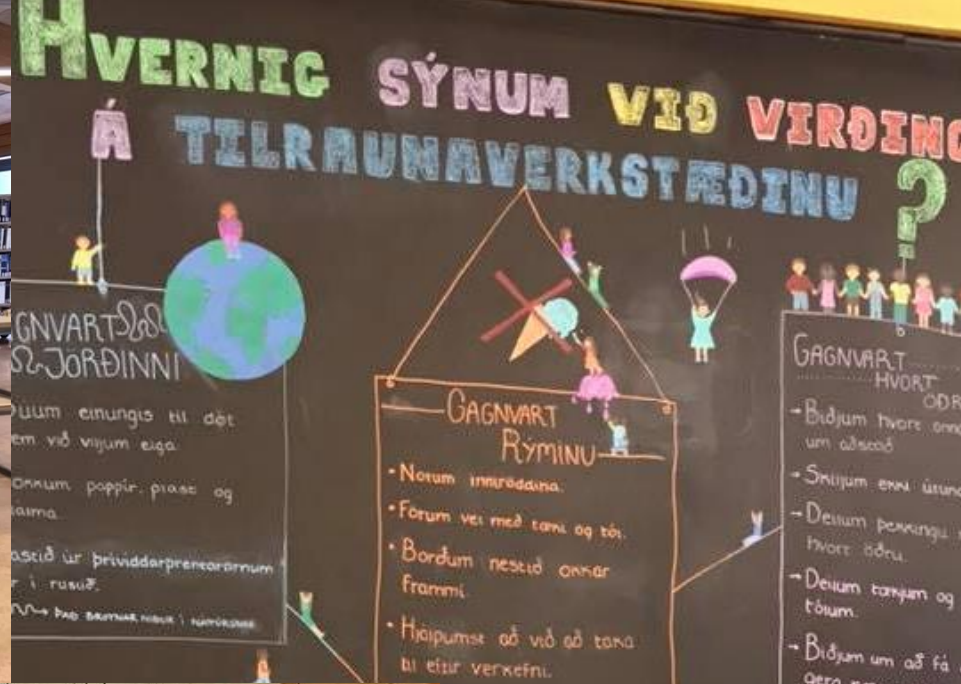 HVERNIG SÝNUM VIÐ VIRÐING
Á TILRAUNAVERKSTÆÐINU ?
GNVART
JÖRÐINNI
uum einungis til dót
em við viljum eiga.
pappír, plast og
astið úr þrívíddarprenturunum
r í ruslið.
ÞAÐ BROTNAR NIÐUR Í NÁTTÚRUNNI
GAGNVART
RÝMINU
• Notum inniröddina.
• Förum vel með tæki og tól.
• Borðum nestið okkar
frammi.
• Hjálpumst að við að taka
til eftir verkefni.
GAGNVART
HVORT
ÖÐR
→ Biðjum hvort
um aðstoð
→ Skiljum ekki útund
→ Deilum þekkingu
hvort öðru.
→ Deilum tækjum og
tólum.
→ Biðjum um að fá
gera